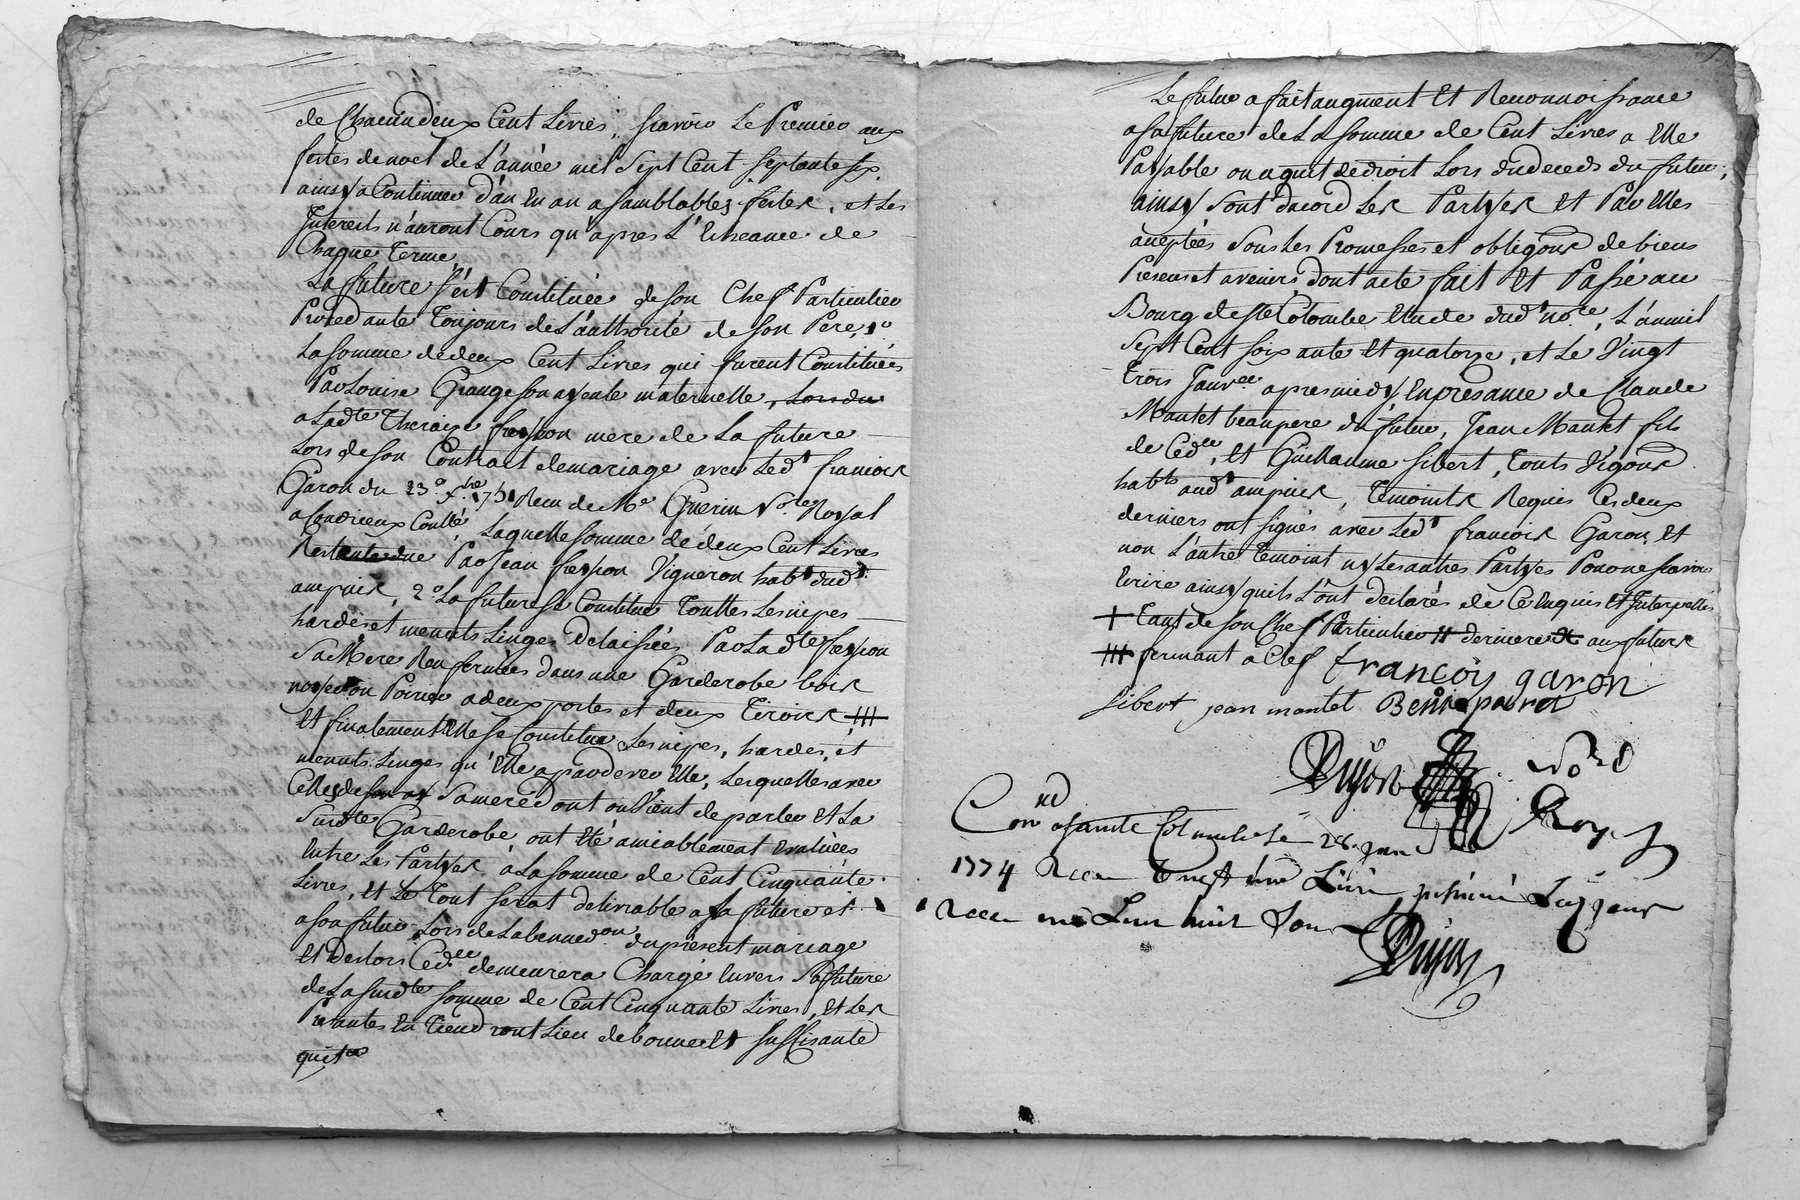 de Chacun deux Cent Livres, scavoir Le Premier aux
festes de noel de L'année mil sept Cent septante six
ainsy a Continuer d'an En an a samblables festes, et Les
Interests n'auront Cours qu'apres L'Echeance de
Chaque Terme,
La future s'est Constituée de son Chef Particulier
Procedante Toujours de L'authorité de son Pere, 1o
La somme de deux Cent Livres qui furent Constituées
Par Louise Grange son ayeule maternelle, Lors du
a Ladte Theraize fresson mere de La future
Lors de son Contrart de mariage avec Ledt francois
Garon du 23e 1751 Receu de Me Guerin Nore Royal
a Condrieux Conllé, Laquelle somme de deux Cent Livres
Restante due Par Jean fresson Vigneron habt dudt
ampuis, 2o La future se Constitue Touttes Les nipes
hardes et menuts Linges delaissées Par Ladte fresson
Sa Mere Renfermées dans une Garderobe bois
noyer ou Poirier a deux portes et deux Tiroirs ####
Et finalement Elle se Constitue Les nipes, hardes, et
menuts Linges qu'Elle a pardever Elle, Lesquelles avec
Celles de sa mere dont on Vient de parler Et La
Surdte Garderobe, ont Eté amiablement Evaluées
Entre Les Partyes a La somme de Cent Cinquante
Livres, et Le Tout serat delivrable a La future et
a son futur Lors de La benne on du present mariage
Et Deslors Cedee demeurera Chargé Envers Sa future
de La surdte somme de Cent Cinquante Livres, Et Les
Presantes En Tiendront Lieu de bonne Et suffisante
quitce
Le futur a fait augment Et Reconnoissance
a sa future de La somme de Cent Livres a Elle
Payable ou a qui de droit Lors du deceds du futur,
ainsy sont d'acord Les Partyes Et Par Elles
aceptées sous Les Promesses et obligons de biens
Presens et avenirs, dont acte fait Et Passé au
Bourg de Ste Colombe Etude dudt nore, L'an mil
sept Cent soixante Et quatorze, et Le Vingt
trois Janvee apres midy En presance de Claude
Mantet beaupere du futur, Jean Mantet fils
de Cedee, Et Guillaume sibert, Touts Vigons
habts audt ampuis, Temoints Requis Ces deux
derniers ont signés avec Ledt francois Garon, Et
non L'autre Temoint ny Les autres Partyes Pour ne scavoir
Ecrire ainsy quils L'ont declarés de Ce Enquis Et Interpellés
+ Tant de son Chef Particulier # derniere aux future
### fermant a Clef françois garon
Sibert jean mantet
Dujast Nore
Royal
Conné a sainte Colombe Le 28 janv
1774 Receu
Receu un Livre huit Sous
Dujast